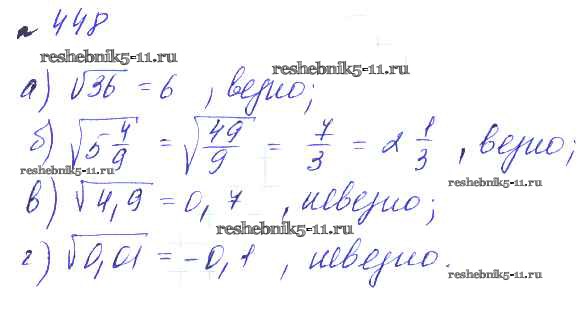 № 448
reshebnik5-11.ru
reshebnik5-11.ru
а) √36 = 6 , верно;
б) √(5 4/9) = √(49/9) = 7/3 = 2 1/3 , верно;
reshebnik5-11.ru
reshebnik5-11.ru
в) √4,9 = 0,7 , неверно;
reshebnik5-11.ru
г) √0,01 = -0,1 , неверно.
reshebnik5-11.ru